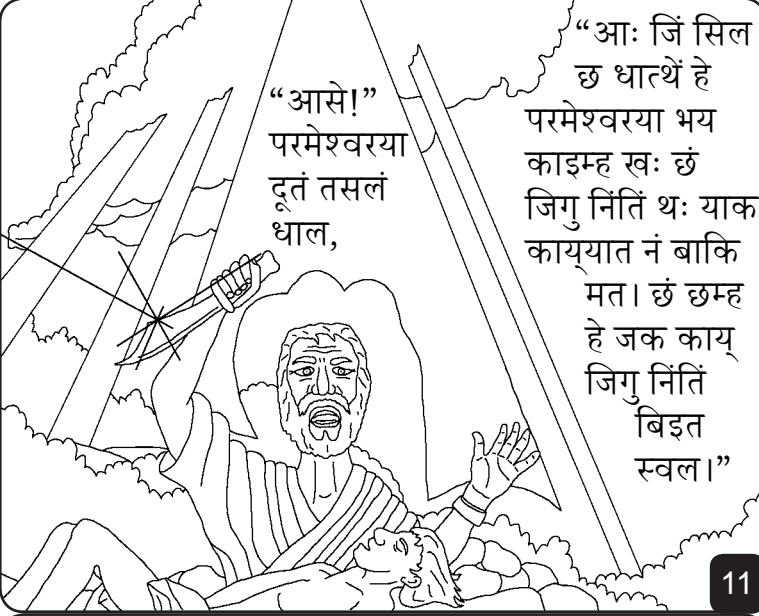 “आसे!”
परमेश्वरया
दूतं तसलं
धाल,
“आः जिं सिल
छ धात्थें हे
परमेश्वरया भय
काइम्ह खः छं
जिगु निंतिं थः याक
काय्‌यात नं बाकि
मत। छं छम्ह
हे जक काय्
जिगु निंतिं
बिइत
स्वल।”
11